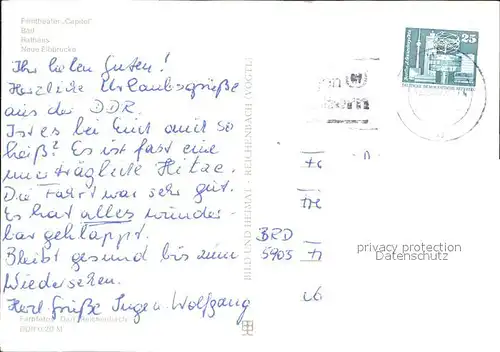 Filmtheater „Capitol"
Bad
Rathaus
Neue Elbbrücke
Ihr lieben Guten!
Herzliche Urlaubsgrüße
aus der DDR.
Ist es bei Euch auch so
heiß? Es ist fast eine
unerträgliche Hitze.
Die Fahrt war sehr gut.
Es hat alles wunder-
bar geklappt.
Bleibt gesund bis zum
Wiedersehen.
Herzl. Grüße Inge u. Wolfgang
BILD UND HEIMAT - REICHENBACH (VOGTL)
25
DEUTSCHE DEMOKRATISCHE REPUBLIK
BRD
5905
privacy protection
Datenschutz